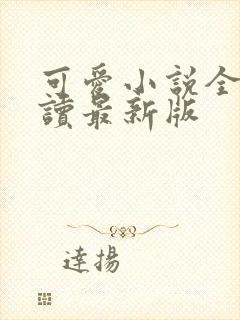 可愛小說全
讀最新版
達揚